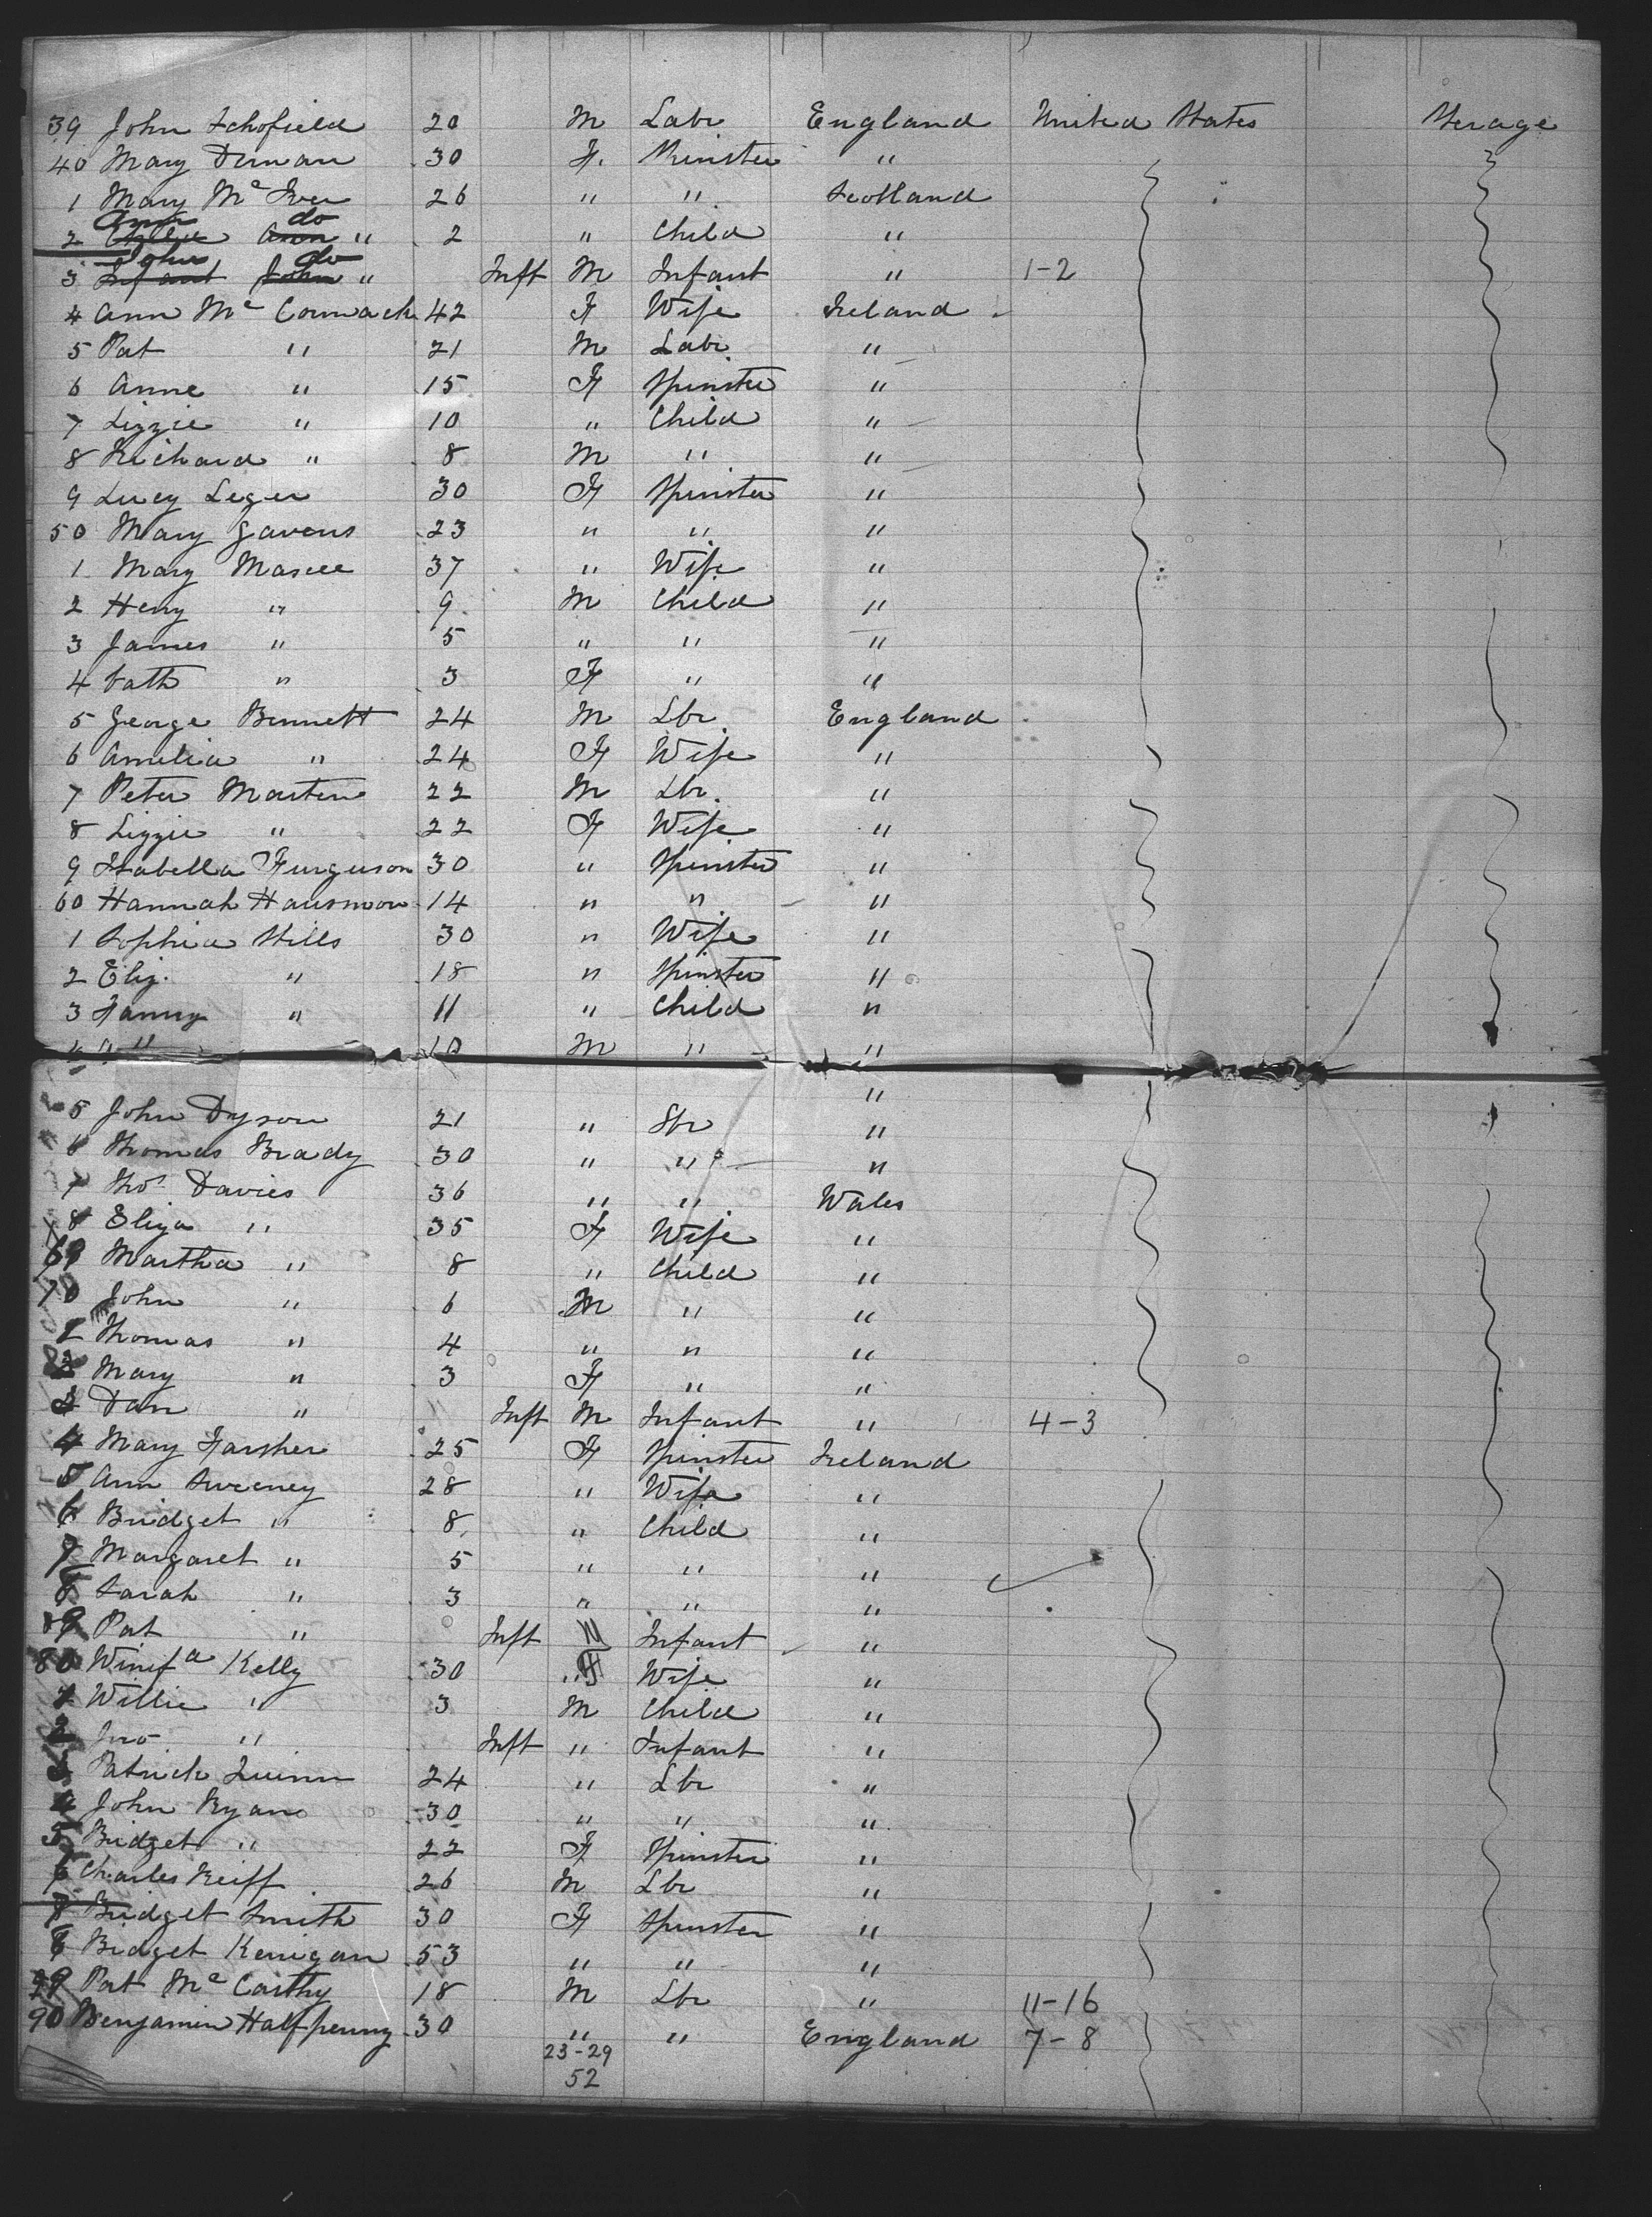 39 John Schofield 20 M Labr England United States Sterage
40 Mary Dirnan 30 F. Spinster "
1 Mary Mc Iver 26 " " Scotland
2 Ann do " 2 " Child "
3 John do " Inft M Infant " 1-2
4 Ann Mc Cormack 42 F Wife Ireland
5 Pat " 21 M Labr "
6 Anne " 15 F Spinster "
7 Lizzie " 10 " Child "
8 Richard " 8 M " "
9 Lucy Leger 30 F Spinster "
50 Mary Gavens 23 " " "
1 Mary 37 " Wife "
2 Heny " 9 M Child "
3 James " 5 " " "
4 Cath " 3 F " "
5 George Bennett 24 M Lbr England
6 Amelia " 24 F Wife "
7 Peter Martin 22 M Lbr. "
8 Lizzie " 22 F Wife "
9 Isabella Furguson 30 " Spinster "
60 Hannah 14 " " "
1 Sophia Hills 30 " Wife "
2 Eliz. " 18 " Spinster "
3 Fanny " 11 " Child "
" 10 M " "
"
5 John Dyson 21 " Lbr "
6 Thomas Brady 30 " " "
7 Thos Davies 36 " " Wales
8 Eliza " 35 F Wife "
69 Martha " 8 " Child "
70 John " 6 M " "
1 Thomas " 4 " " "
2 Mary " 3 F " "
3 Dan " Inft M Infant " 4-3
4 Mary Farsher 25 F Spinster Ireland
5 Ann Sweeney 28 " Wife "
6 Bridget " 8 " Child "
7 Margaret " 5 " " "
8 Sarah " 3 " " "
79 Pat " Inft M Infant "
80 Winifa Kelly 30 F Wife "
1 Willie " 3 M Child "
2 Jno " Inft " Infant "
3 Patrick Quinn 24 " Lbr "
4 John Ryan 30 " " "
5 Bridget " 22 F Spinster "
6 Charles Keiff 26 M Lbr "
7 Bridget Smith 30 F Spinster "
8 Bridget Kerrigan 53 " " "
89 Pat Mc Carthy 18 M Lbr " 11-16
90 Benjamin Halfpenny 30 " " England 7-8
23-29
52